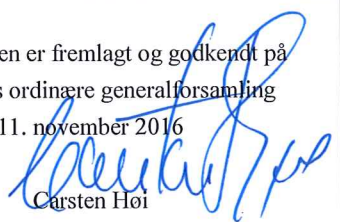 en er fremlagt og godkendt på
s ordinære generalforsamling
11. november 2016
Carsten Høi